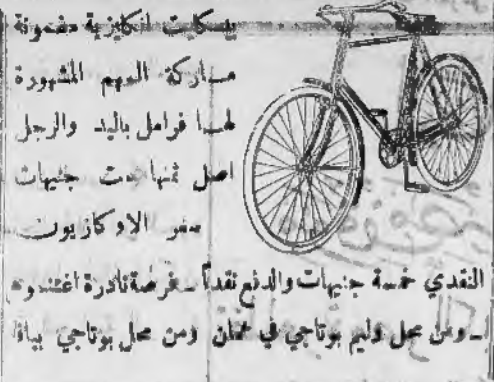 بيسكليت انكليزية مضمونة
ماركة السهم المشهورة
لها فرامل باليد والرجل
اصل ثمنها جنيهات
سعر الاوكازيون
النقدي خمسة جنيهات والدفع نقداً فرصة نادرة اغتنموها
من محل وليم بوتاجي في عمان ومن محل بوتاجي بيافا